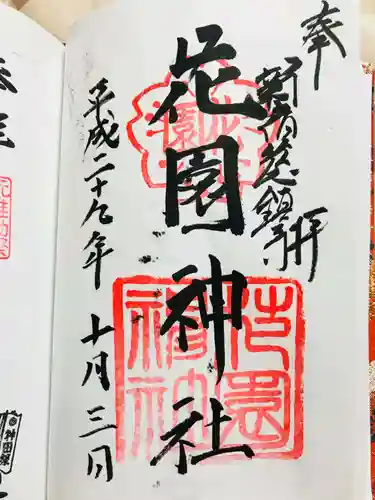 奉拝
新宿総鎮守
花園神社
平成二十九年十月三日
花園神社
神田祭